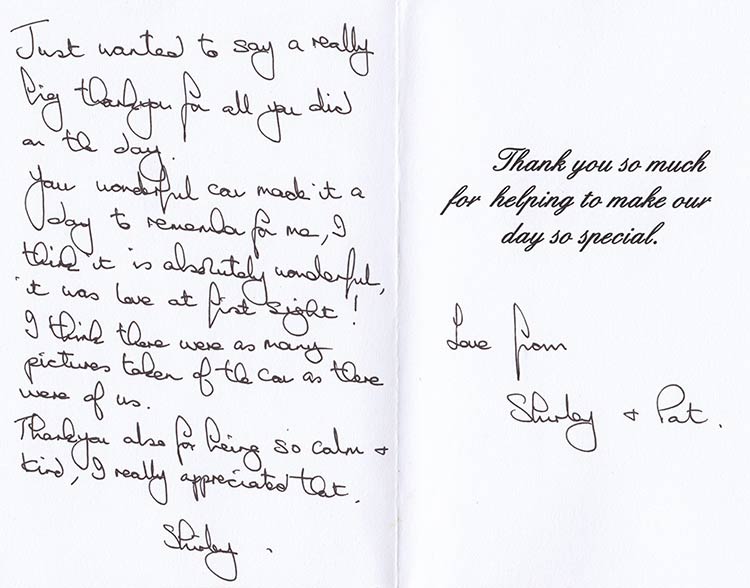 Just wanted to say a really
big thankyou for all you did
on the day.
Your wonderful car made it a
day to remember for me, I
think it is absolutely wonderful,
it was love at first sight!
I think there were as many
pictures taken of the car as there
were of us.
Thankyou also for being so calm +
kind, I really appreciated that.
Shirley.
Thank you so much
for helping to make our
day so special.
Love from
Shirley + Pat.